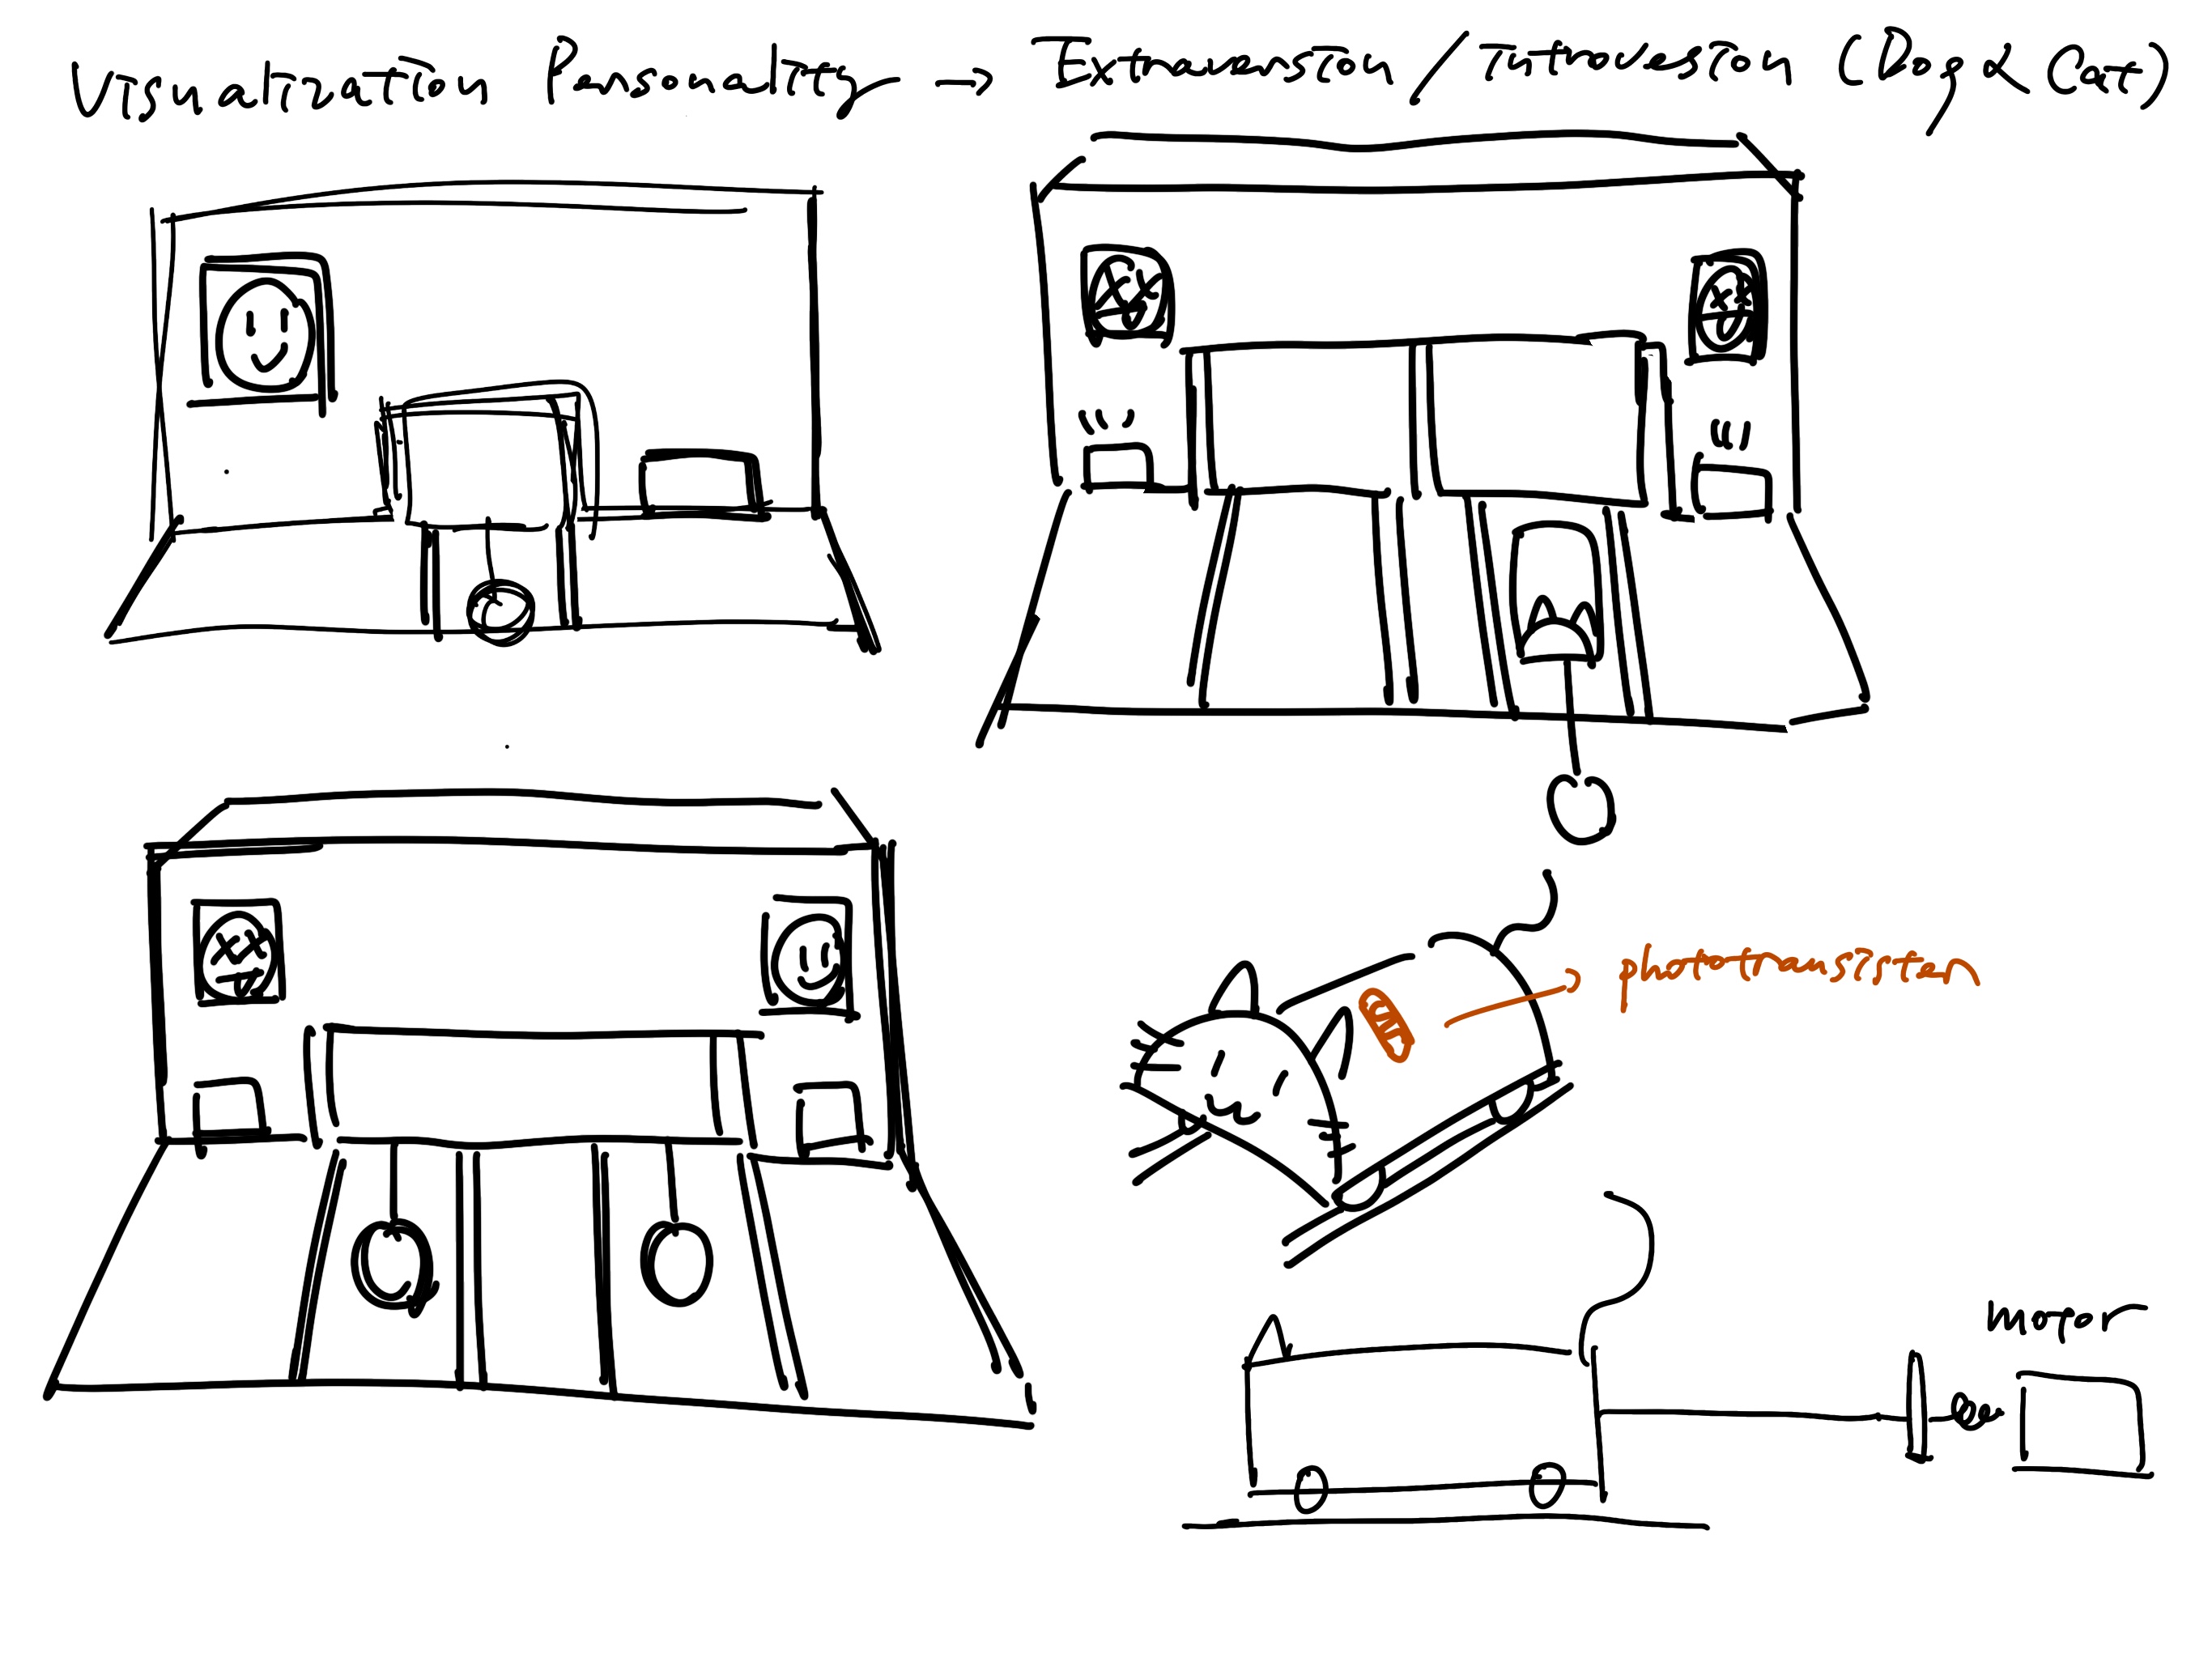 Visualization Personality → Extraversion/Introvesion (Dog & Cat)
phototransister
motor